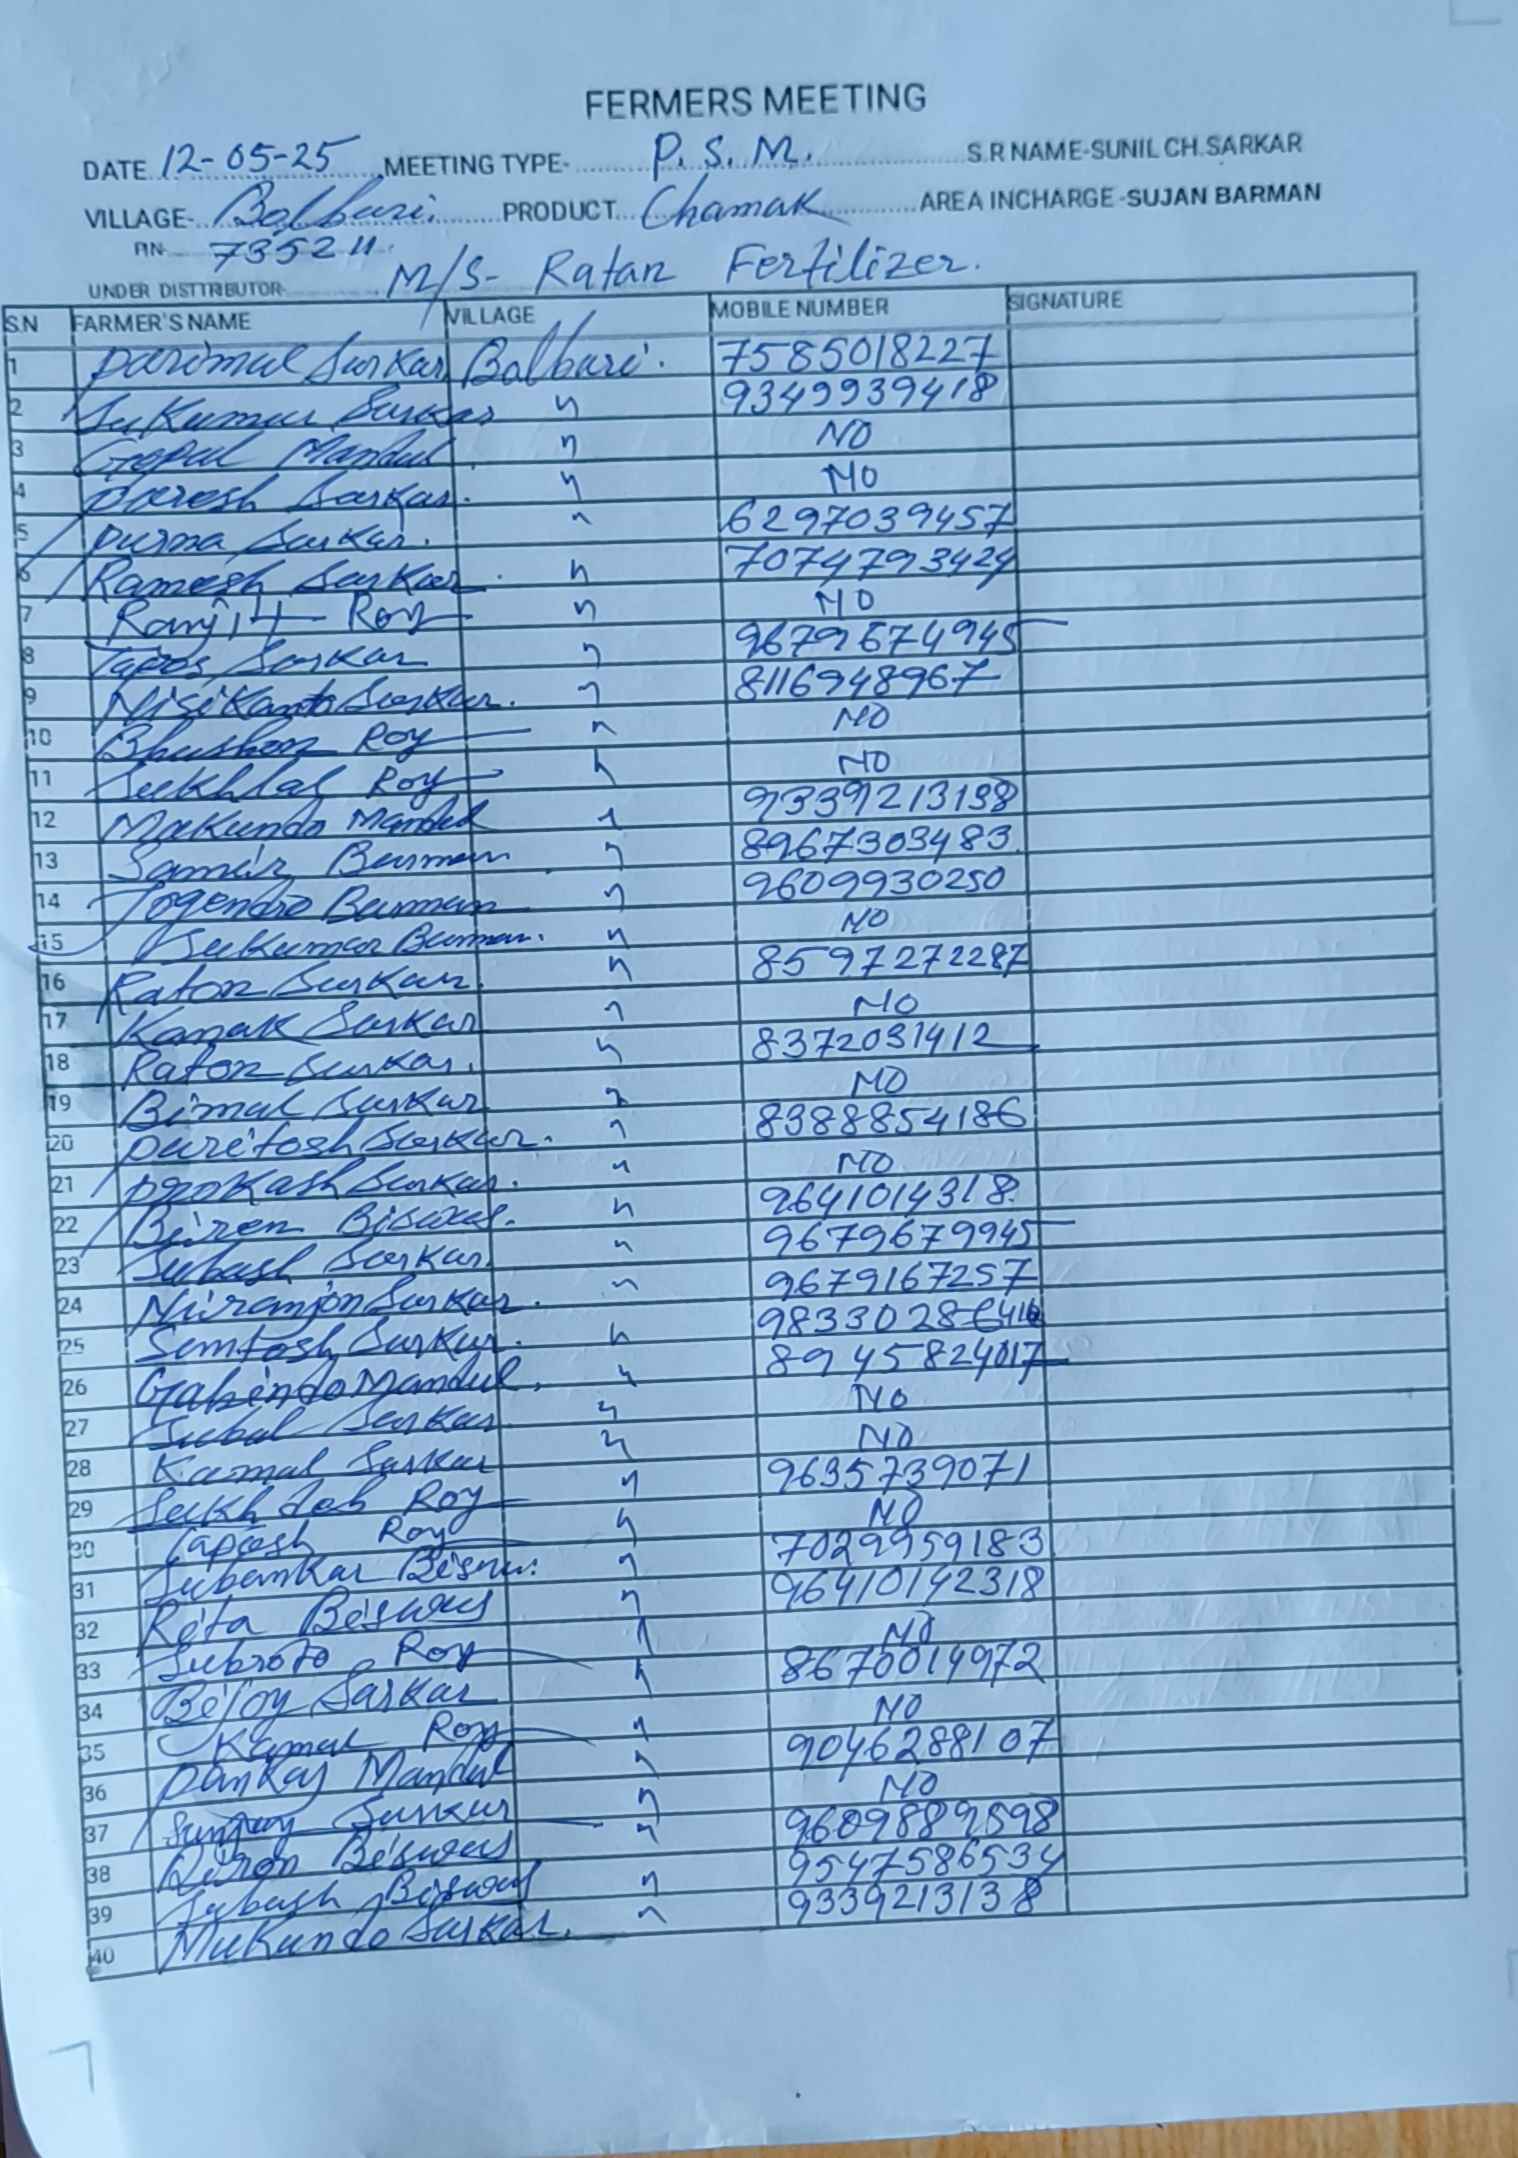 FERMERS MEETING
DATE 12-05-25 MEETING TYPE- P. S. M. S.R NAME-SUNIL CH.SARKAR
VILLAGE- Balbari. PRODUCT Chamak AREA INCHARGE-SUJAN BARMAN
PIN 735211
UNDER DISTTRIBUTOR M/S- Ratan Fertilizer.
S.N FARMER'S NAME VILLAGE MOBILE NUMBER SIGNATURE
1 parimal Sarkar Balbari. 7585018227
2 Sukumar Sarkar " 9349939418
3 Gopal Mandal " NO
4 paresh Sarkar. " NO
5 purna Sarkar. " 6297039457
6 Ramesh Sarkar " 7074793424
7 Ranjit Roy " NO
8 Tapos Sarkar " 9679674945
9 Nisikanto Sarkar. " 8116948967
10 Bhushon Roy " NO
11 Sukhlal Roy " NO
12 Makundo Mandal " 9339213138
13 Samir Barman " 8967303483
14 Jogendro Barman " 9609930250
15 Sukumar Barman. " NO
16 Raton Sarkar. " 8597272287
17 Kanak Sarkar " NO
18 Raton Sarkar. " 8372031412
19 Bimal Sarkar " NO
20 paritosh Sarkar. " 8388854186
21 prokash Sarkar. " NO
22 Biren Biswas. " 9641014318
23 Subash Sarkar. " 9679679945
24 Niranjon Sarkar. " 9679167257
25 Santosh Sarkar. "
26 Gabindo Mandal. " 8945824017
27 Subal Sarkar " NO
28 Kamal Sarkar " NO
29 Sukhdeb Roy " 9635739071
30 Tapash Roy " NO
31 Subankar Biswas. " 7029959183
32 Rita Biswas " 96410142318
33 Subroto Roy " NO
34 Bijoy Sarkar " 8670014972
35 Kamal Roy " NO
36 pankaj Mandal " 9046288107
37 Sarkar " NO
38 Biswas " 9609889598
39 Subash Biswas " 9547586534
40 Mukundo Sarkar. " 9339213138